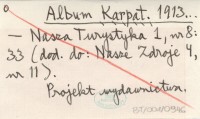 Album Karpat. 1913...
— Nasza Turystyka 1, nr 8:
33 (dod. do: Nasze Zdroje 4,
nr 11).
Projekt wydawnictwa.